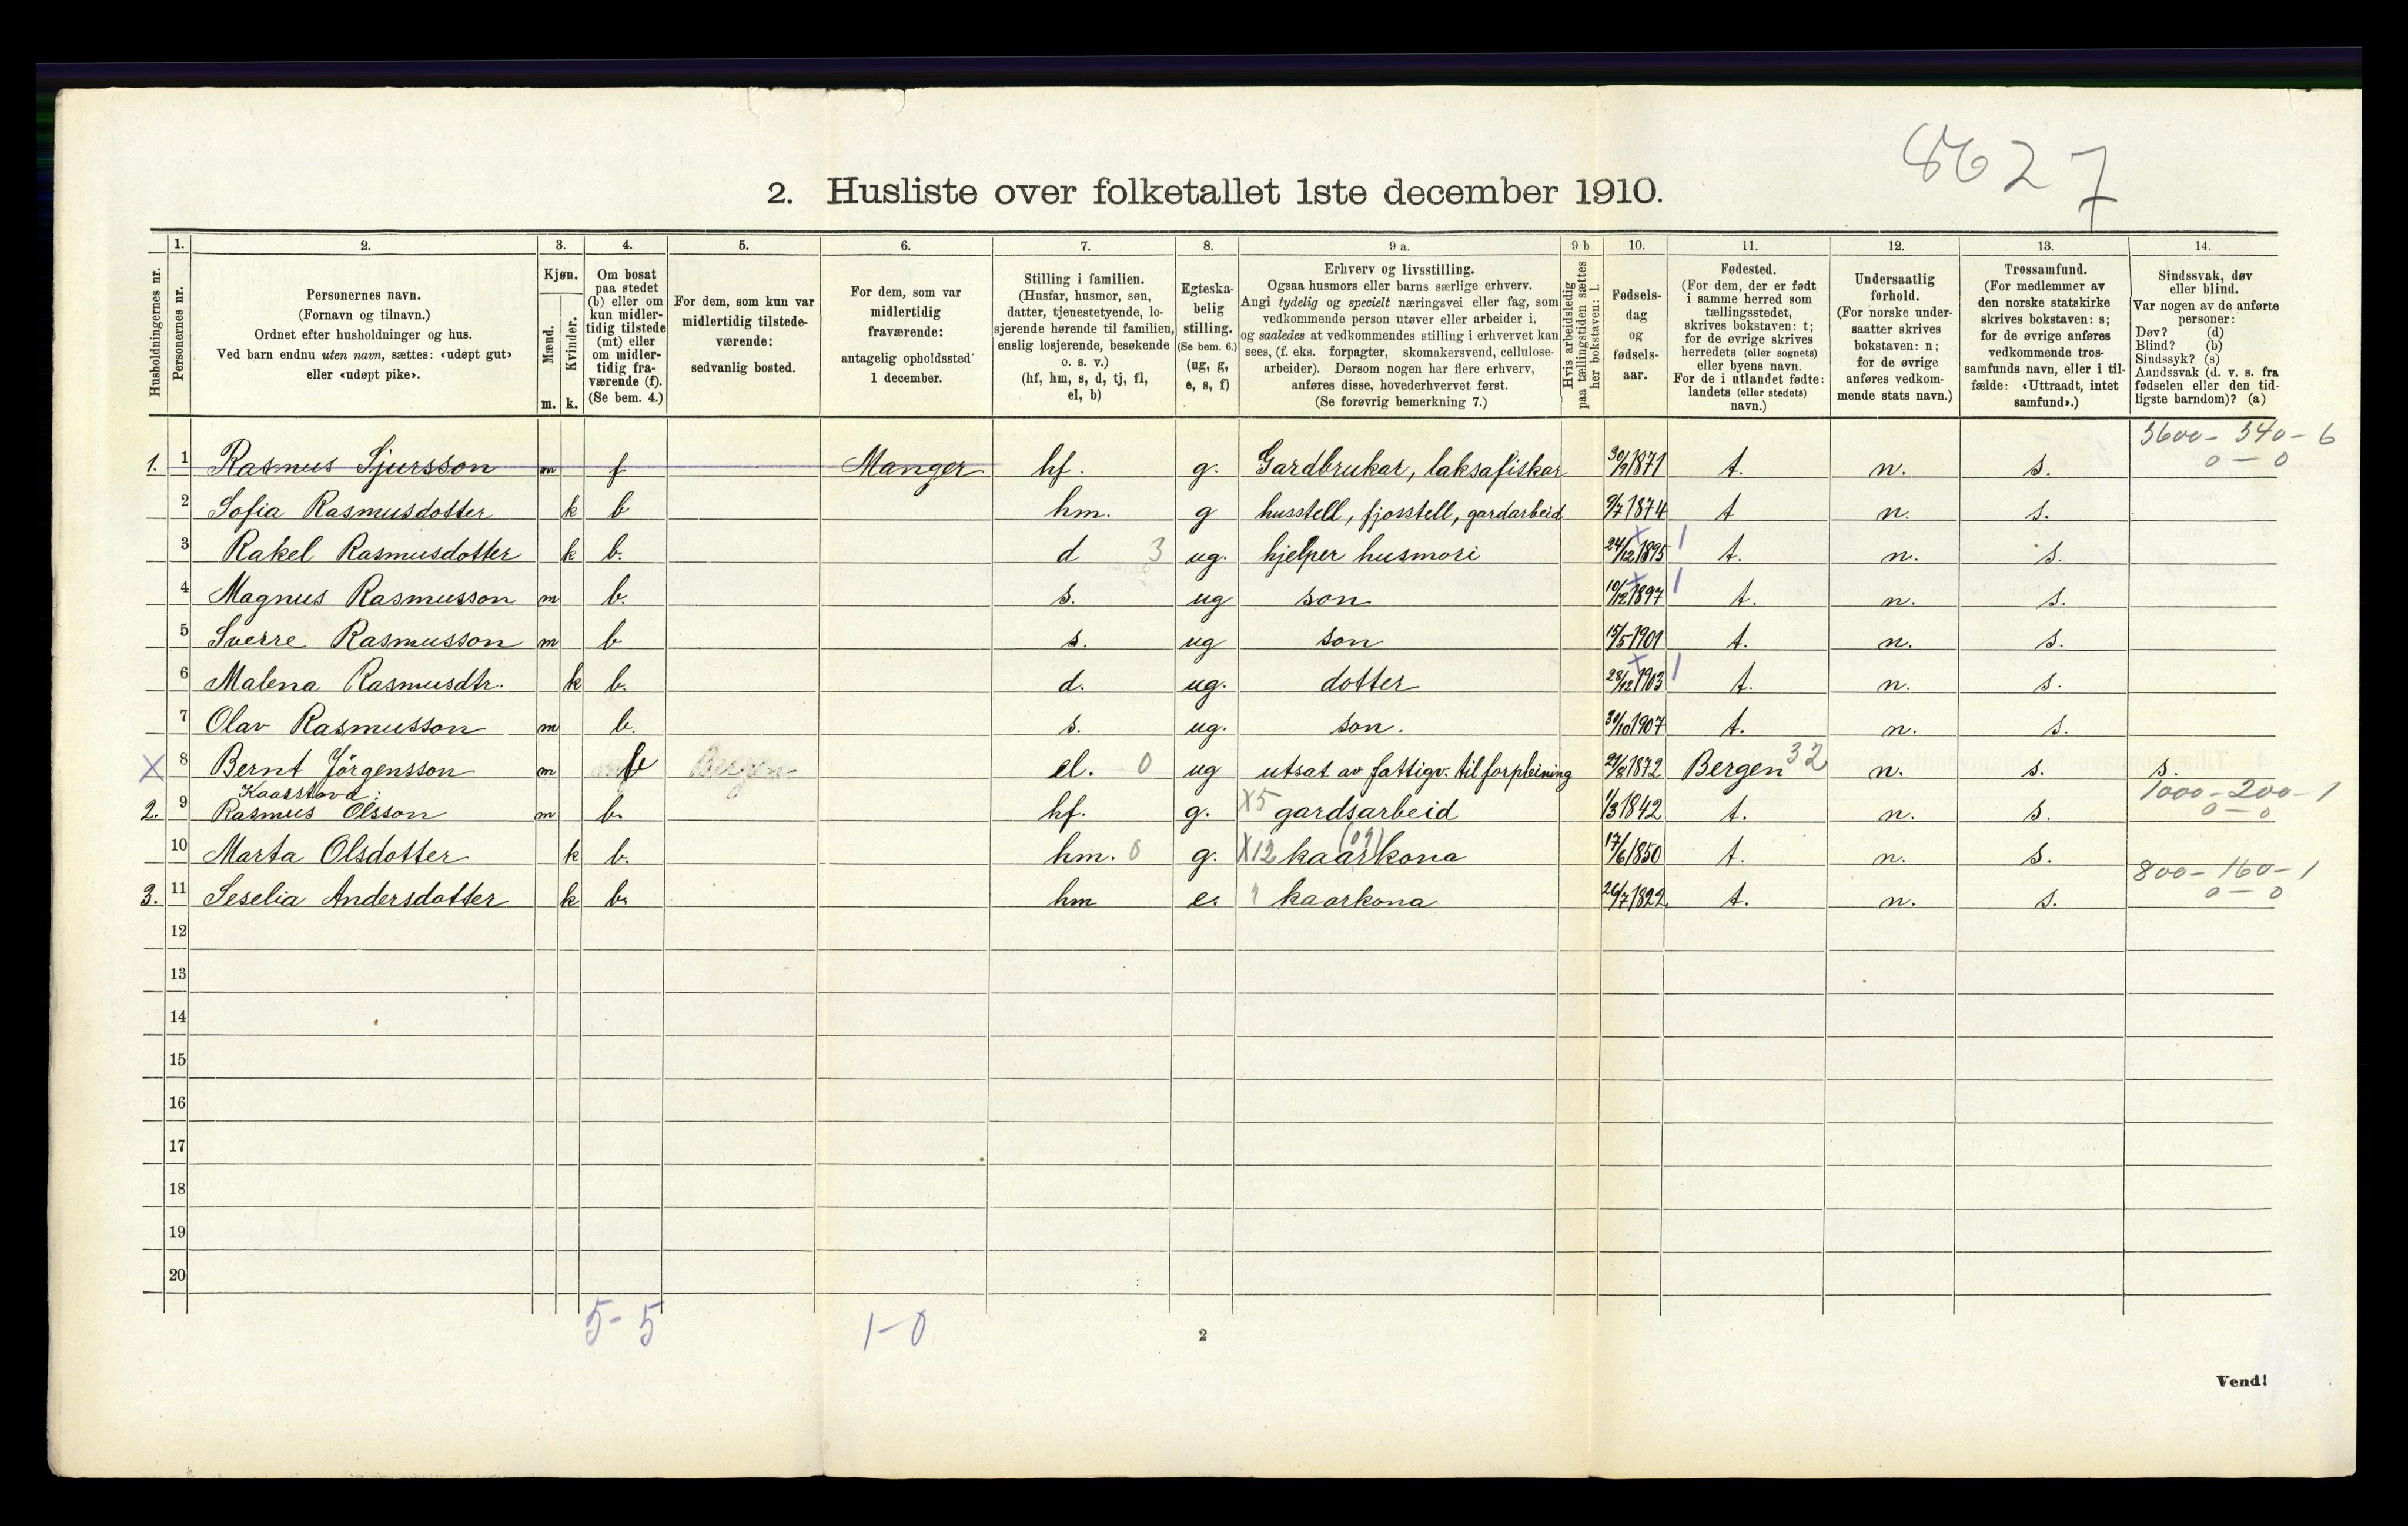 8627
2. Husliste over folketallet 1ste december 1910.
Husholdningernes nr.
1. Personernes nr.
2. Personernes navn. (Fornavn og tilnavn.) Ordnet efter husholdninger og hus. Ved barn endnu uten navn, sættes: «udøpt gut» eller «udøpt pike».
3. Kjøn. Mænd. m. Kvinder. k.
4. Om bosat paa stedet (b) eller om kun midlertidig tilstede (mt) eller om midlertidig fraværende (f). (Se bem. 4.)
5. For dem, som kun var midlertidig tilstedeværende: sedvanlig bosted.
6. For dem, som var midlertidig fraværende: antagelig opholdssted 1 december.
7. Stilling i familien. (Husfar, husmor, søn, datter, tjenestetyende, losjerende hørende til familien, enslig losjerende, besøkende o. s. v.) (hf, hm, s, d, tj, fl, el, b)
8. Egteskabelig stilling. (Se bem. 6.) (ug, g, e, s, f)
9 a. Erhverv og livsstilling. Ogsaa husmors eller barns særlige erhverv. Angi tydelig og specielt næringsvei eller fag, som vedkommende person utøver eller arbeider i, og saaledes at vedkommendes stilling i erhvervet kan sees, (f. eks. forpagter, skomakersvend, cellulosearbeider). Dersom nogen har flere erhverv, anføres disse, hovederhvervet først. (Se forøvrig bemerkning 7.)
9 b Hvis arbeidsledig paa tællingstiden sættes her bokstaven: l.
10. Fødselsdag og fødselsaar.
11. Fødested. (For dem, der er født i samme herred som tællingsstedet, skrives bokstaven: t; for de øvrige skrives herredets (eller sognets) eller byens navn. For de i utlandet fødte: landets (eller stedets) navn.)
12. Undersaatlig forhold. (For norske undersaatter skrives bokstaven: n; for de øvrige anføres vedkommende stats navn.)
13. Trossamfund. (For medlemmer av den norske statskirke skrives bokstaven: s; for de øvrige anføres vedkommende trossamfunds navn, eller i tilfælde: «Uttraadt, intet samfund».)
14. Sindssvak, døv eller blind. Var nogen av de anførte personer: Døv? (d) Blind? (b) Sindssyk? (s) Aandssvak (d. v. s. fra fødselen eller den tidligste barndom)? (a)
3600 - 340 - 6
1. 1 Rasmus Sjursson m f Manger hf. g. Gardbrukar, laksafiskar 30/9 1871 t. n. s. 0 - 0
2 Sofia Rasmusdotter k b hm. g husstell, fjosstell, gardarbeid 9/7 1874 t n. s.
3 Rakel Rasmusdotter k b. d 3 ug. hjelper husmori 24/12 1895 1 t. n. s.
4 Magnus Rasmusson m b. s. ug son 10/12 1897 1 t. n. s.
5 Sverre Rasmusson m b s. ug son 15/5 1901 t. n. s.
6 Malena Rasmusdtr. k b. d. ug. dotter 28/12 1903 1 t. n. s.
7 Olav Rasmusson m b. s. ug. son. 30/10 1907 t. n. s.
X 8 Bernt Jörgensson m b Bergen el. 0 ug utsat av fattigv. til forpleining 21/8 1872 Bergen 32 n. s. s.
Kaarstova: 1000 - 200 - 1
2. 9 Rasmus Olsson m b. hf. g. X5 gardsarbeid 1/3 1842 t. n. s. 0 - 0
10 Marta Olsdotter k b. hm. 0 g. X12 kaarkona 17/6 1850 t. n. s.
800 - 160 - 1
3. 11 Seselia Andersdotter k b. hm e. kaarkona 26/7 1822 t. n. s. 0 - 0
12
13
14
15
16
17
18
19
20
5-5 1-0
2
Vend!